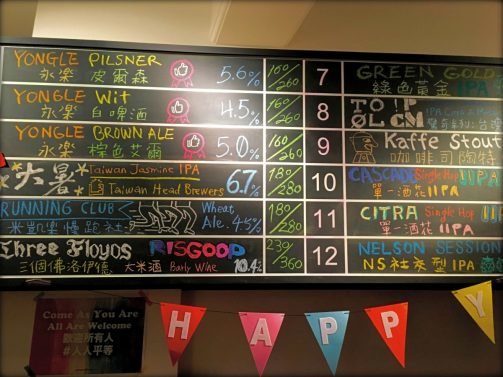 YONGLE PILSNER
永樂 皮爾森
5.6%
160/260
YONGLE Wit
永樂 白啤酒
4.5%
160/260
YONGLE BROWN ALE
永樂 棕色艾爾
5.0%
160/260
大暑
Taiwan Jasmine IPA
Taiwan Head Brewers
6.7%
180/280
RUNNING CLUB
米凱樂慢跑社
Wheat
Ale. 4.5%
180/280
Three Floyds RISGOOP
三個佛洛伊德、大米酒 Barly Wine 10.4%
239/360
7
GREEN GOLD
綠色黃金 IIPA
8
TO ØL
9
Kaffe Stout
咖啡司陶特
10
CASCADE Single Hop
單一酒花 IIPA
11
CITRA Single Hop
單一酒花 IIPA
12
NELSON SESSION
NS社交型IPA
Come As You Are
All Are Welcome
歡迎所有人
#人人平等
HAPPY